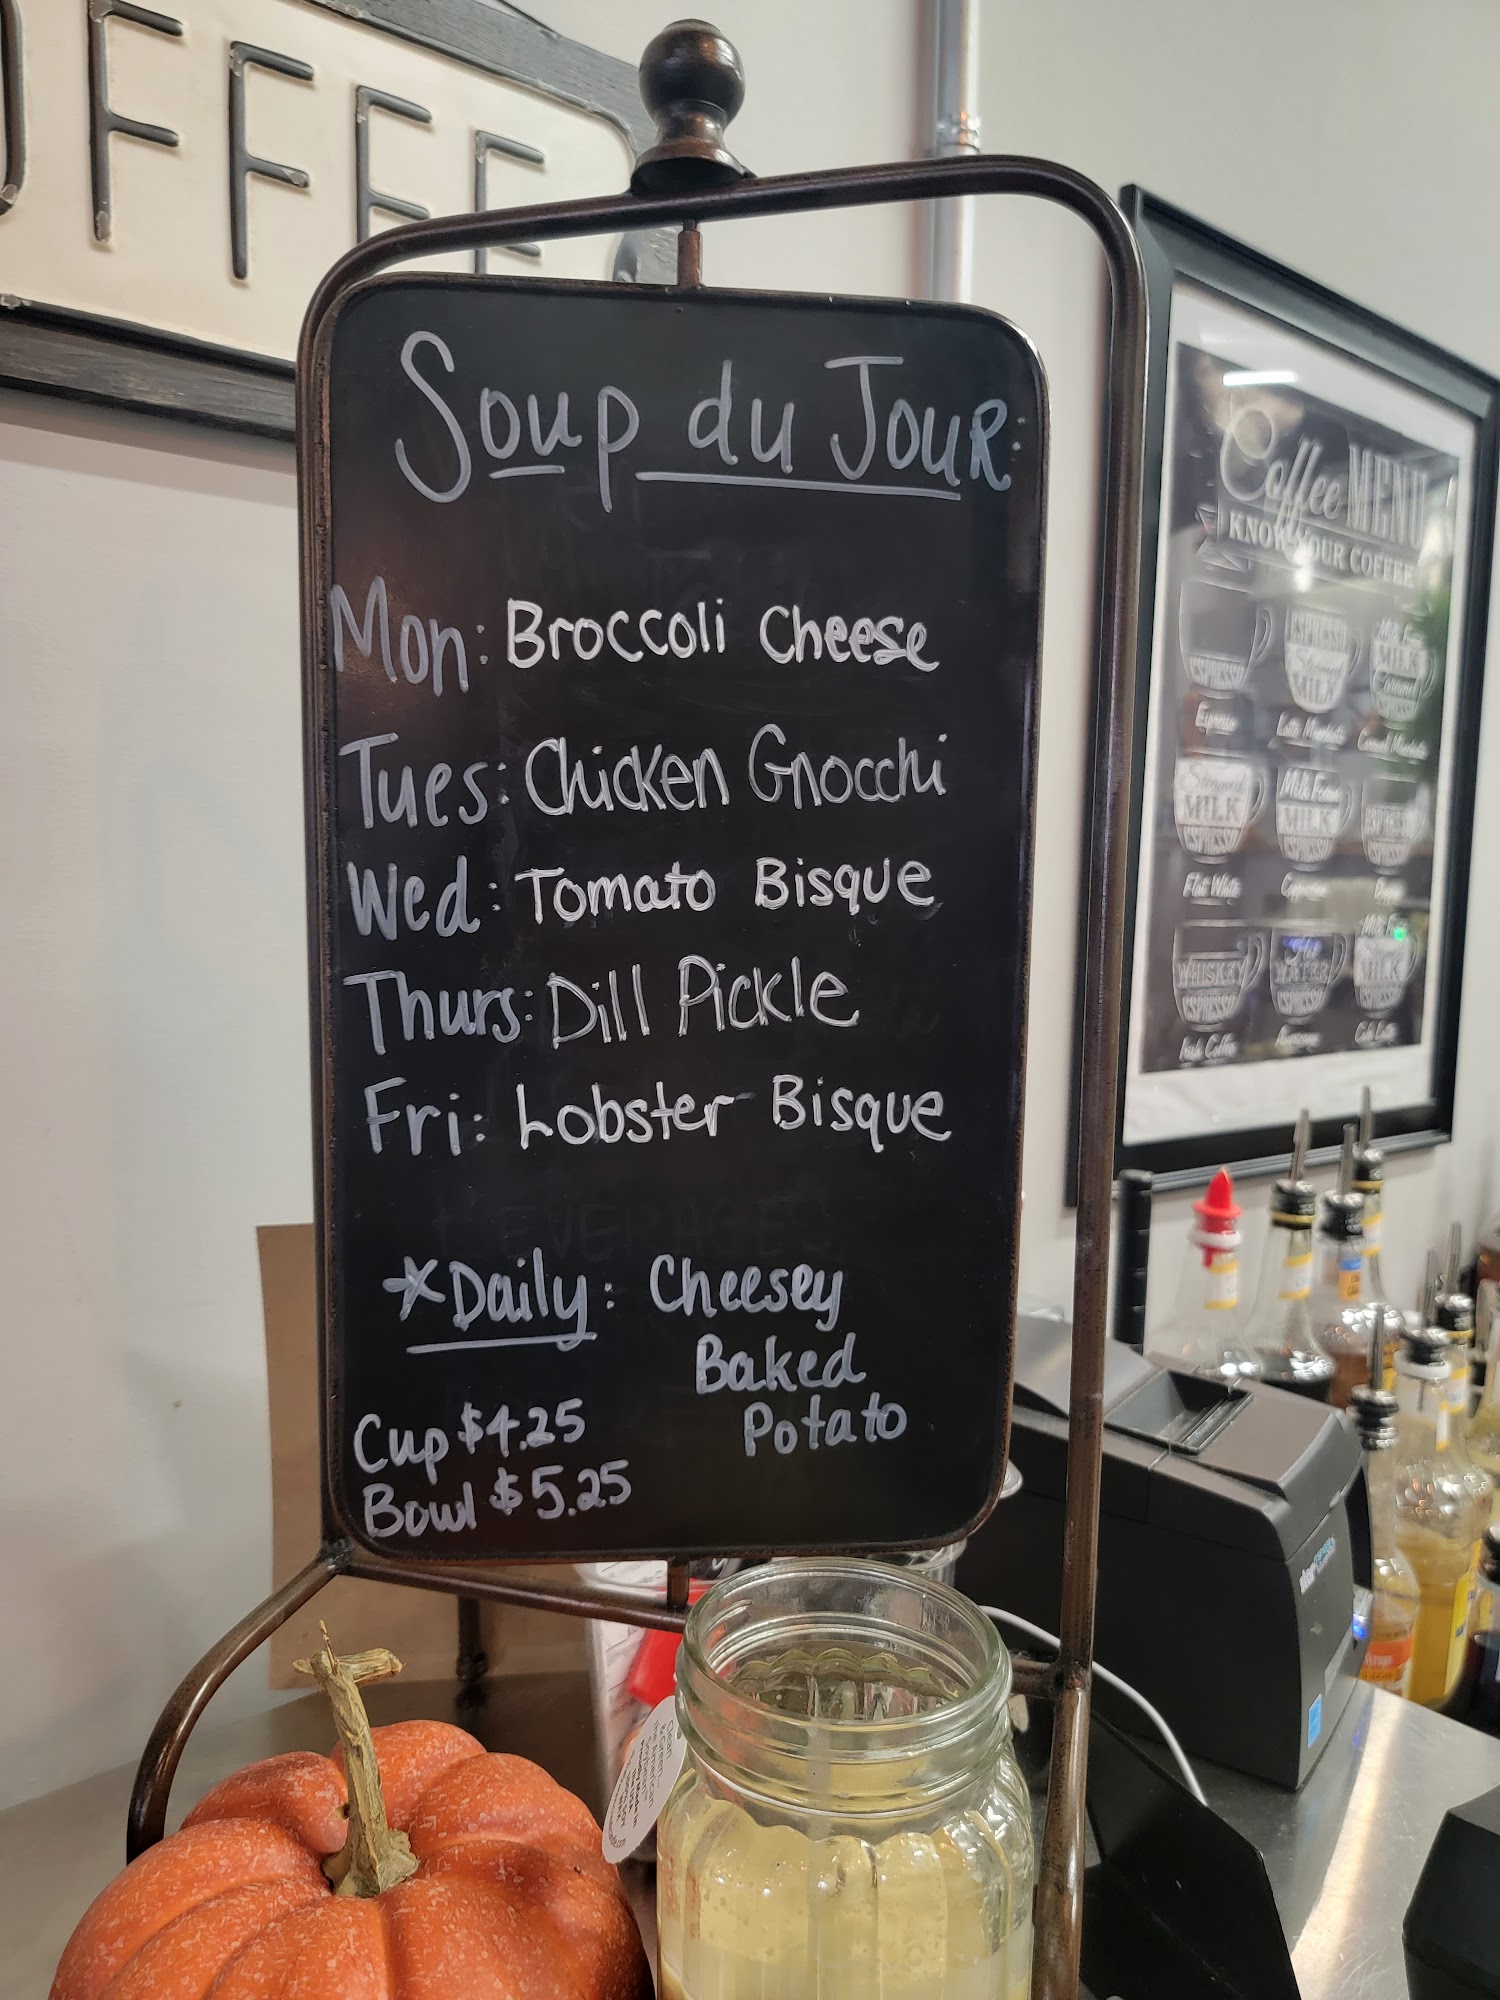 OFFEE
Soup du Jour:
Mon: Broccoli Cheese
Tues: Chicken Gnocchi
Wed: Tomato Bisque
Thurs: Dill Pickle
Fri: Lobster Bisque
*Daily: Cheesey
Baked
Potato
Cup $4.25
Bowl $5.25
Coffee MENU
KNOW YOUR COFFEE
ESPRESSO
ESPRESSO
Steamed
MILK
MILK
Caramel
Espresso
Latte Macchiato
Caramel Macchiato
Steamed
MILK
ESPRESSO
Milk Foam
MILK
ESPRESSO
ESPRESSO
Flat White
WHISKEY
ESPRESSO
Hot
WATER
ESPRESSO
Irish Coffee
Americano